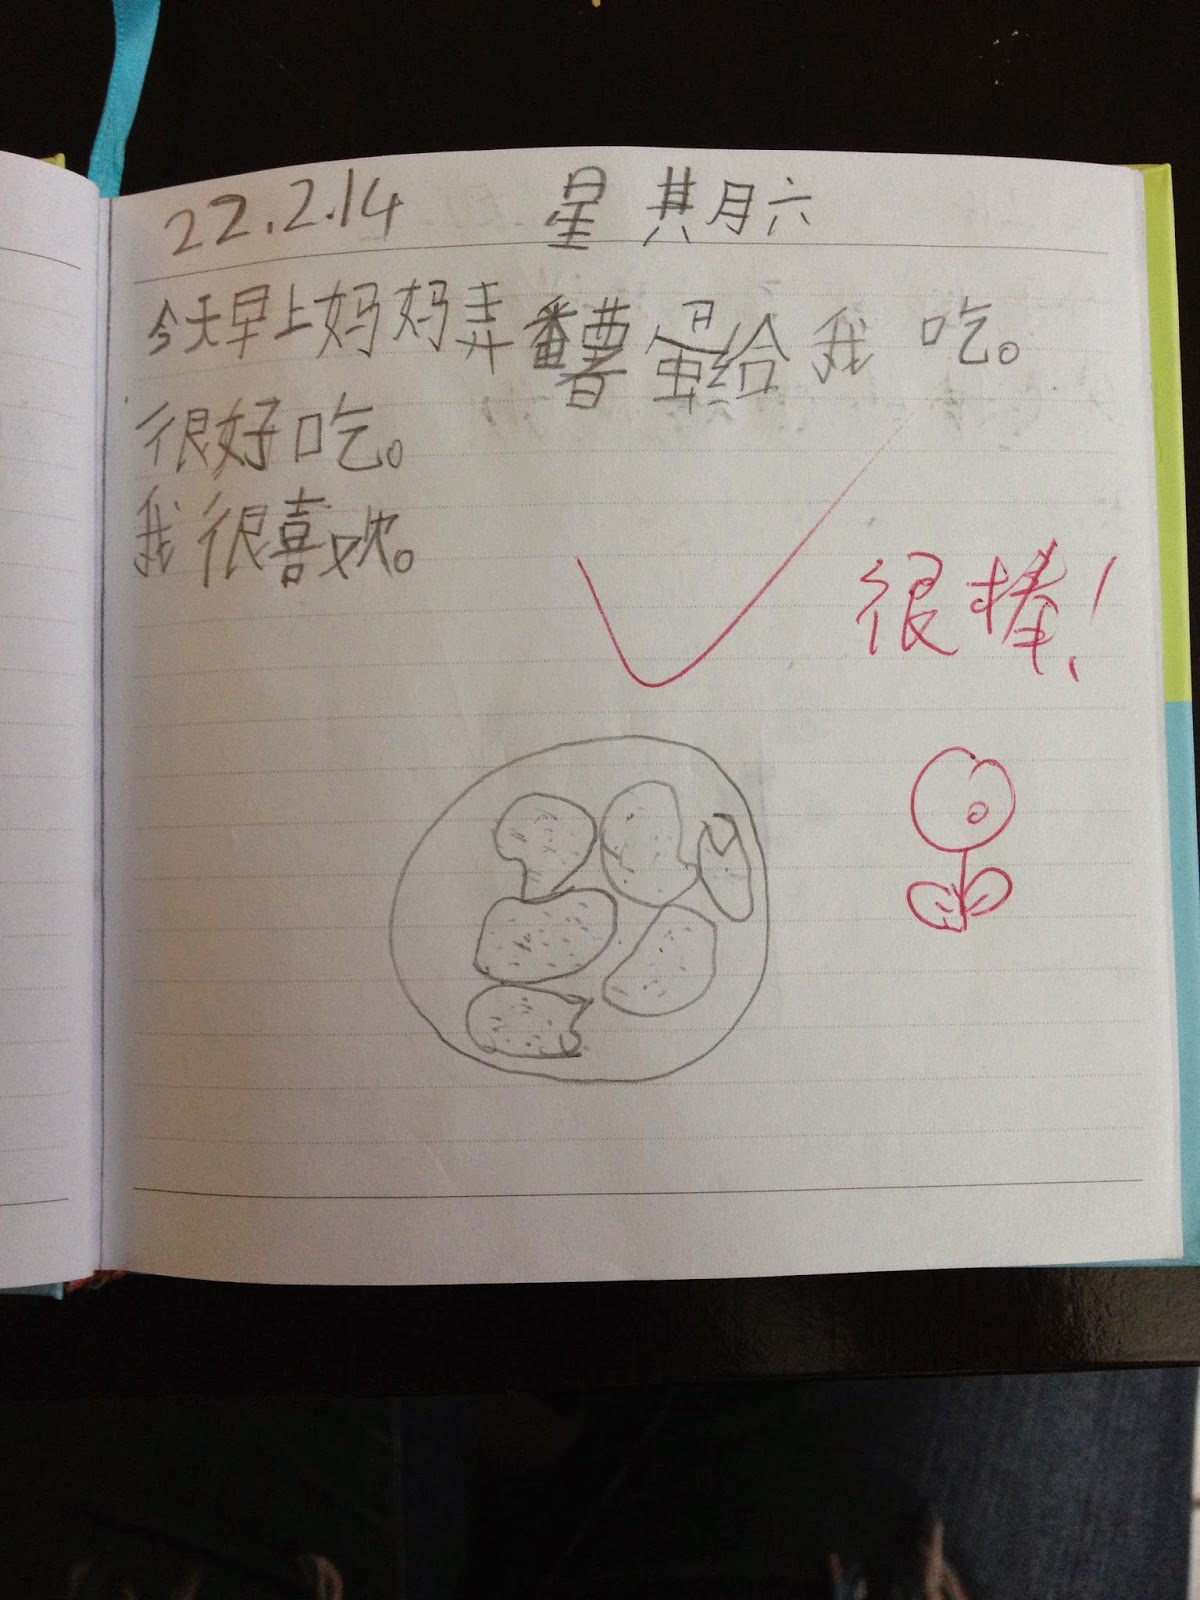 22.2.14 星期六
今天早上妈妈弄番薯蛋给我吃。
很好吃。
我很喜欢。
很棒!